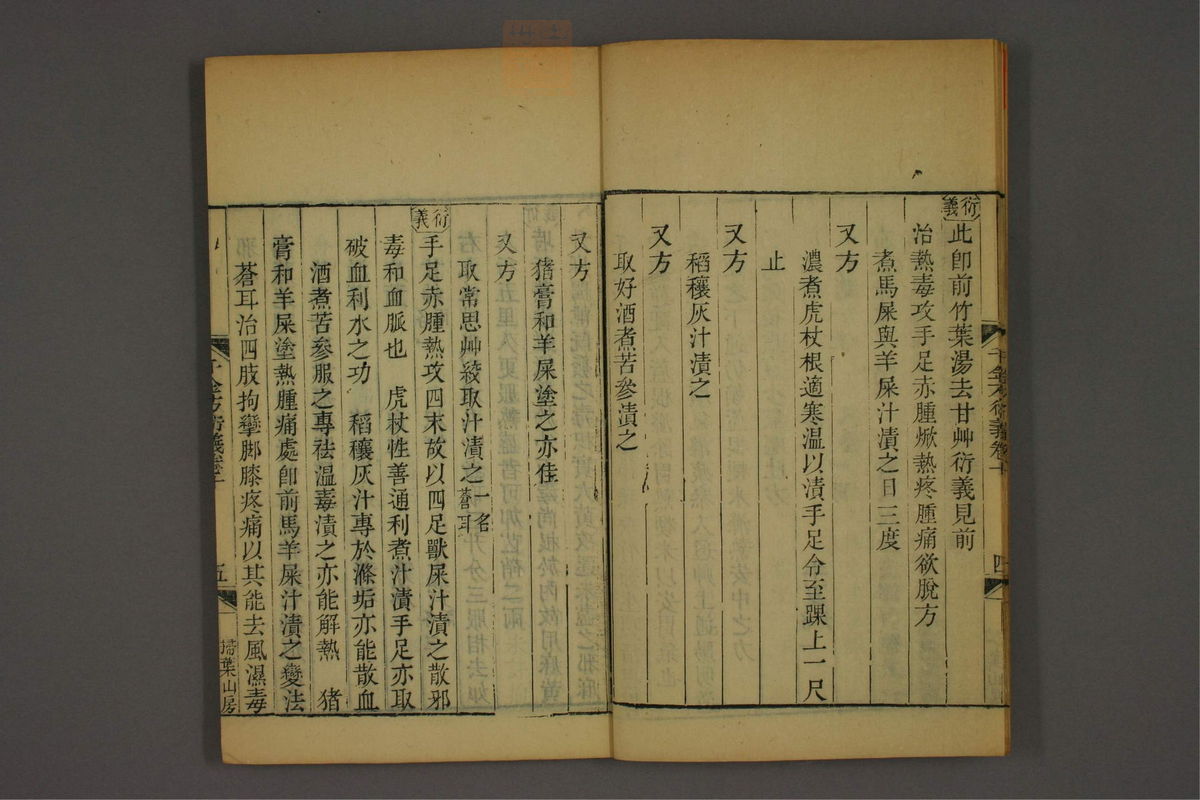 衍義
此卽前竹葉湯去甘艸衍義見前
治熱毒攻手足赤腫焮熱疼腫痛欲脫方
煮馬屎與羊屎汁漬之日三度
又方
濃煮虎杖根適寒温以漬手足令至踝上一尺
止
又方
稻穰灰汁漬之
又方
取好酒煮苦參漬之
千金方衍義卷十
四
又方
猪膏和羊屎塗之亦佳
又方
取常思艸絞取汁漬之一名蒼耳
衍義
手足赤腫熱攻四末故以四足獸屎汁漬之散邪
毒和血脈也 虎杖性善通利煮汁漬手足亦取
破血利水之功 稻穰灰汁專於滌垢亦能散血
酒煮苦參服之專祛温毒漬之亦能解熱 猪
膏和羊屎塗熱腫痛處卽前馬羊屎汁漬之變法
蒼耳治四肢拘攣脚膝疼痛以其能去風濕毒
千金方衍義卷十
五
掃葉山房